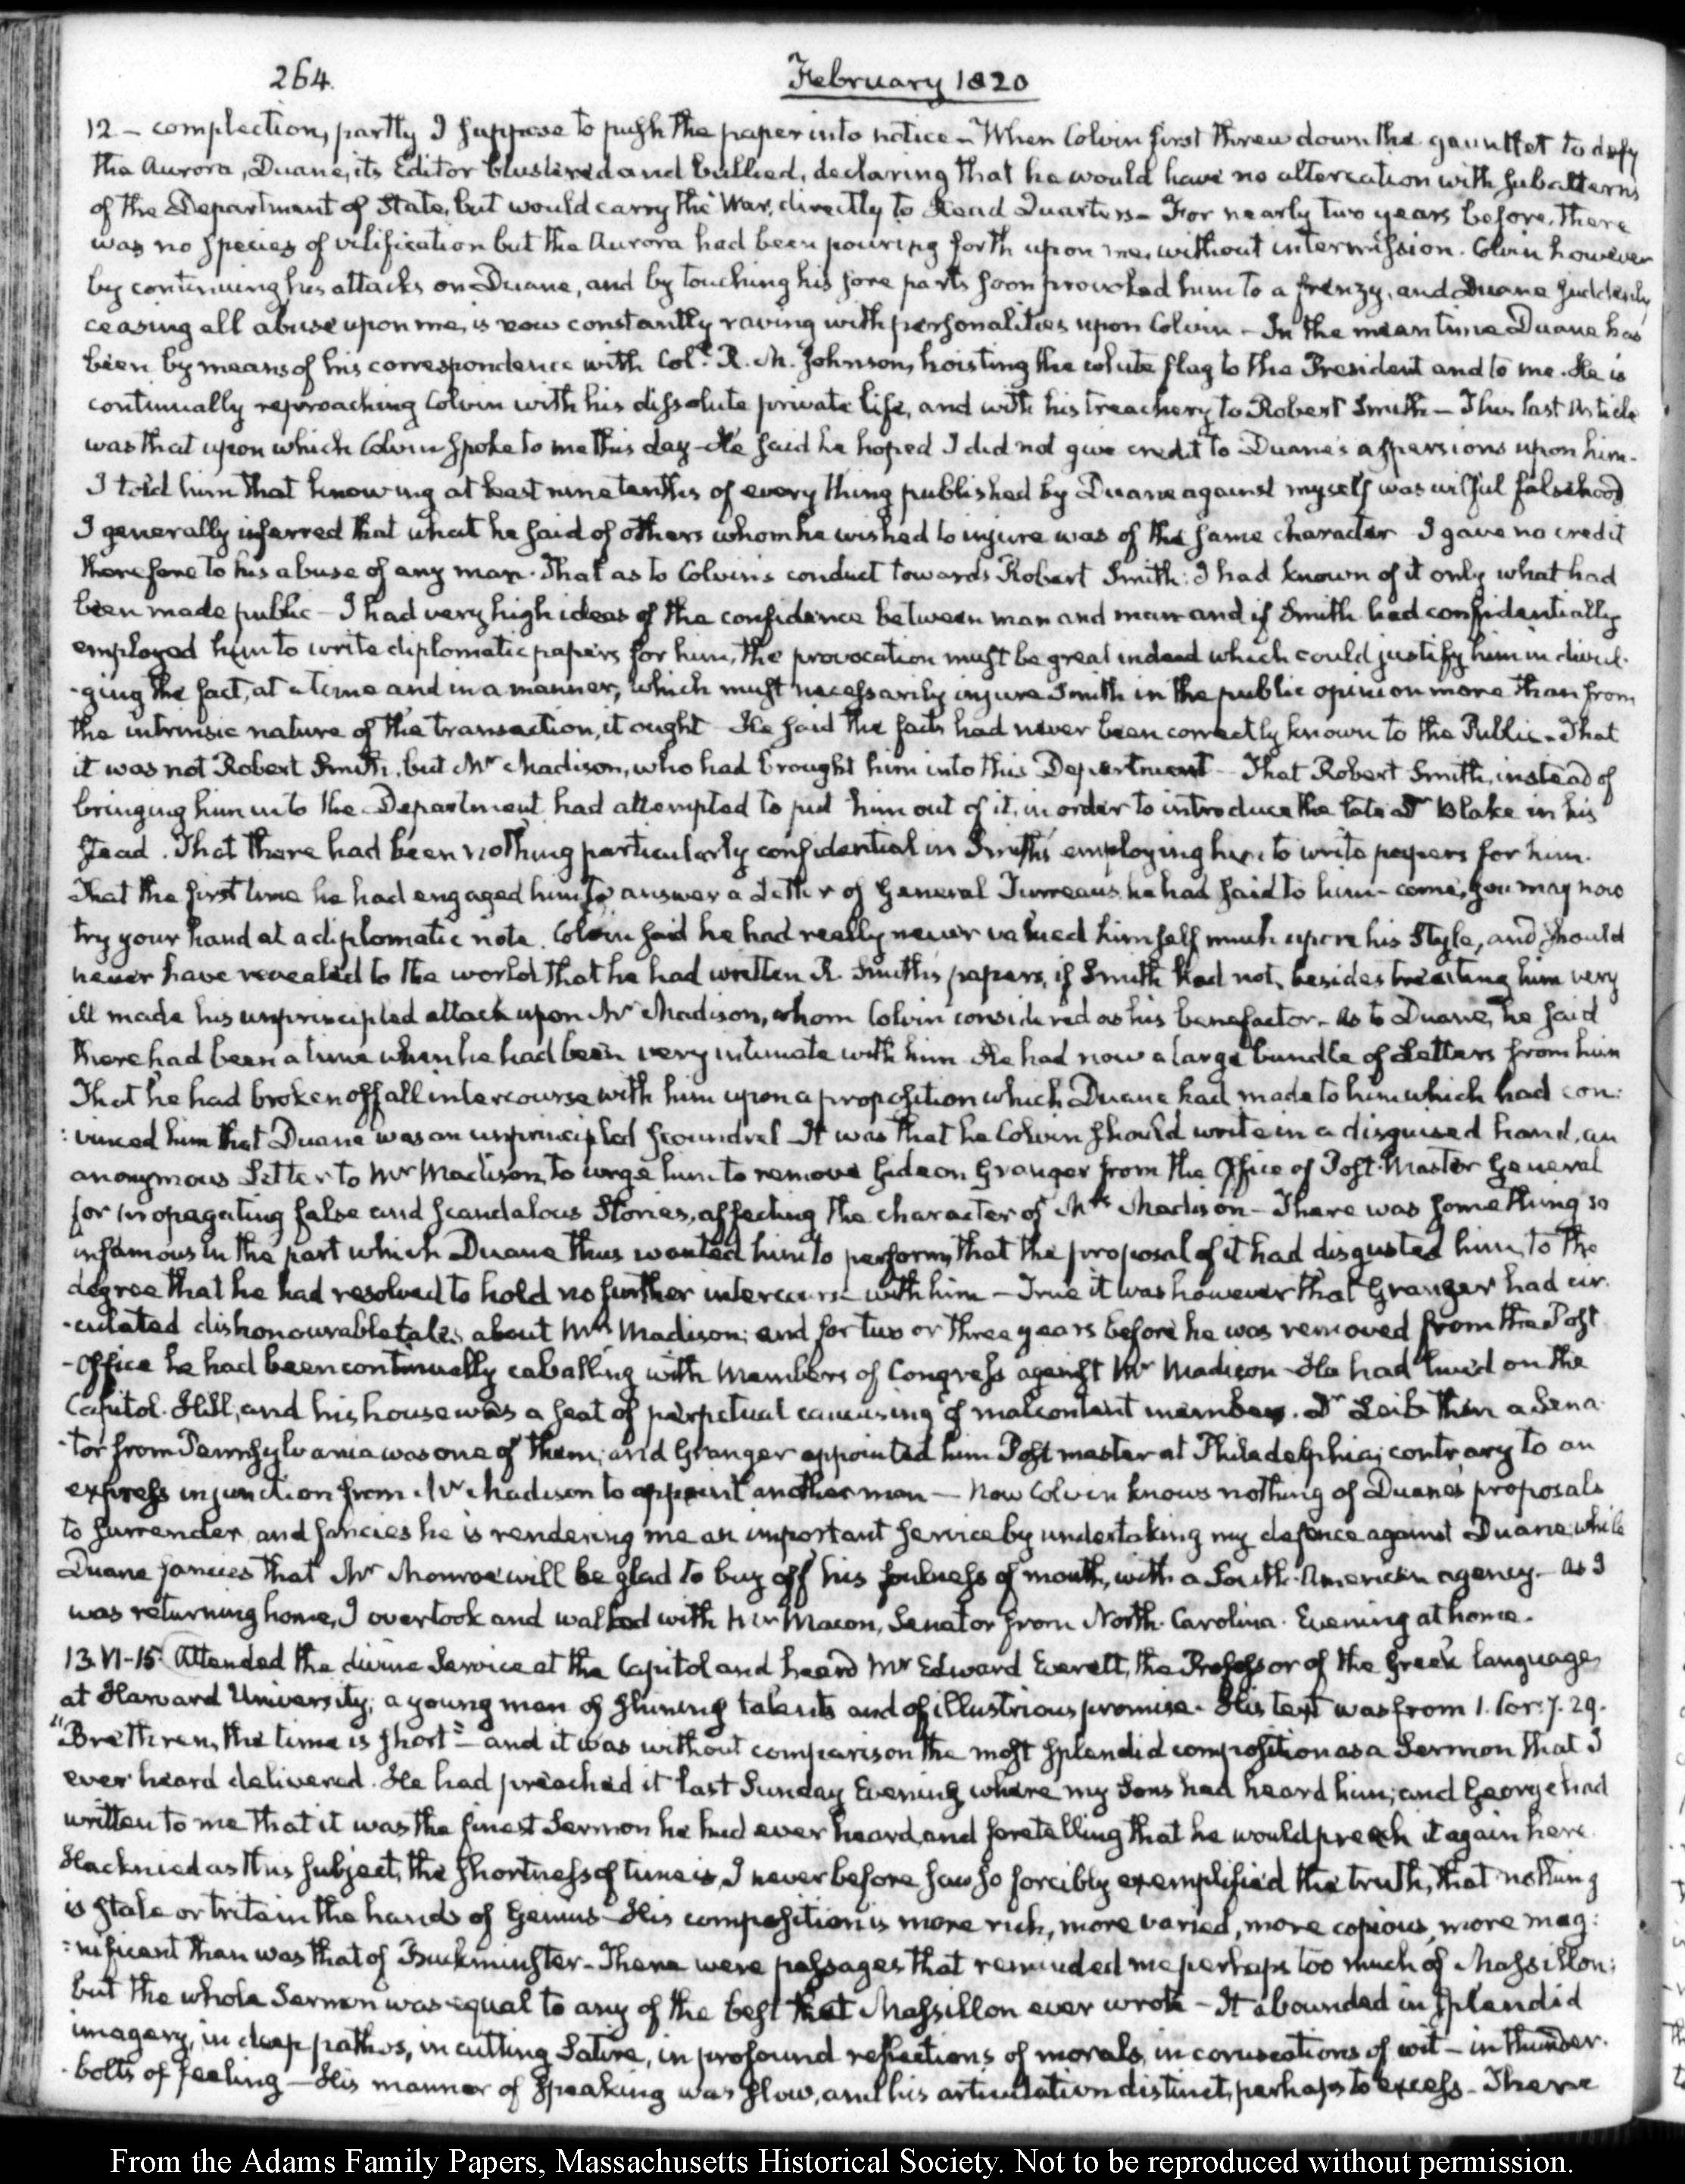 264.
February 1820
12 – complection, partly I suppose to push the paper into notice – When Colvin first threw down the gauntlet to defy
the Aurora, Duane, its Editor blustered and bullied, declaring that he would have no altercation with subalterns
of the Department of State, but would carry the War, directly to Head Quarters – For nearly two years before, there
was no species of vilification but the Aurora had been pouring forth upon me, without intermission. Colvin however
by continuing his attacks on Duane, and by touching his sore parts soon provoked him to a frenzy, and Duane suddenly
ceasing all abuse upon me, is now constantly raving with personalities upon Colvin – In the mean time Duane has
been by means of his correspondence with Col.l R. M. Johnson, hoisting the white flag to the President and to me. He is
continually reproaching Colvin with his dissolute private life, and with his treachery to Robert Smith – This last Article
was that upon which Colvin spoke to me this day – He said he hoped I did not give credit to Duane's aspersions upon him.
I told him that knowing at least nine tenths of every thing published by Duane against myself was wilful falsehood
I generally inferred that what he said of others whom he wished to injure was of the same character I gave no credit
therefore to his abuse of any man. That as to Colvin's conduct towards Robert Smith: I had known of it only what had
been made public – I had very high ideas of the confidence between man and man and if Smith had confidentially
employed him to write diplomatic papers for him, the provocation must be great indeed which could justify him in divul-
-ging the fact, at a time and in a manner, which must necessarily injure Smith in the public opinion more than from
the intrinsic nature of the transaction, it ought – He said the facts had never been correctly known to the Public – That
it was not Robert Smith, but Mr Madison, who had brought him into this Department – That Robert Smith, instead of
bringing him into the Department had attempted to put him out of it, in order to introduce the late Dr Blake in his
stead. That there had been nothing particularly confidential in Smith's employing him to write papers for him.
That the first time he had engaged him to answer a Letter of General Turreau's he had said to him – come, you may now
try your hand at a diplomatic note. Colvin said he had really never valued himself much upon his style, and should
never have revealed to the world that he had written R. Smith's papers, if Smith had not, besides treating him very
ill made his unprincipled attack upon Mr Madison, whom Colvin considered as his benefactor – As to Duane, he said
there had been a time when he had been very intimate with him He had now a large bundle of Letters from him
That he had broken off all intercourse with him upon a proposition which Duane had made to him which had con:
:vinced him that Duane was an unprincipled scoundrel – It was that he Colvin should write in a disguised hand, an
anonymous Letter to Mr Madison, to urge him to remove Gideon Granger from the Office of Post-Master General
for propagating false and scandalous stories, affecting the character of Mrs Madison – There was something so
infamous in the part which Duane thus wanted him to perform, that the proposal of it had disgusted him, to the
degree that he had resolved to hold no further intercourse with him – True it was however that Granger had cir-
-culated dishonourable tales about Mrs Madison; and for two or three years before he was removed from the Post
-Office he had been continually caballing with Members of Congress against Mr Madison – He had lived on the
Capitol-Hill, and his house was a seat of perpetual caucusing of malcontent members. Dr Leib then a Sena-
-tor from Pennsylvania was one of them; and Granger appointed him Post master at Philadelphia; contrary to an
express injunction from Mr Madison to appoint another man – Now Colvin knows nothing of Duane's proposals
to surrender, and fancies he is rendering me an important service by undertaking my defence against Duane; while
Duane fancies that Mr Monroe will be glad to buy off his foulness of mouth, with a South-American agency – As I
was returning home, I overtook and walked with Mr Macon, Senator from North-Carolina. Evening at home.
13. VI-15. Attended the divine Service at the Capitol and heard Mr Edward Everett, the Professor of the Greek language
at Harvard University; a young man of shining talents and of illustrious promise. His text was from 1. Cor: 7. 29.
"Brethren, the time is short" – and it was without comparison the most splendid composition as a Sermon that I
ever heard delivered. He had preached it last Sunday Evening, where my Sons had heard him; and George had
written to me that it was the finest Sermon he had ever heard, and foretelling that he would preach it again here.
Hacknied as this subject, the shortness of time is, I never before saw so forcibly exemplified the truth, that nothing
is stale or trite in the hands of Genius – His composition is more rich, more varied, more copious, more mag:
:nificent than was that of Buckminster – There were passages that reminded me perhaps too much of Massillon;
but the whole Sermon was equal to any of the best that Massillon ever wrote – It abounded in splendid
imagery, in deep pathos, in cutting Satire, in profound reflections of morals, in coruscations of wit – in thunder-
-bolts of feeling – His manner of speaking was slow, and his articulation distinct, perhaps to excess – There
From the Adams Family Papers, Massachusetts Historical Society. Not to be reproduced without permission.